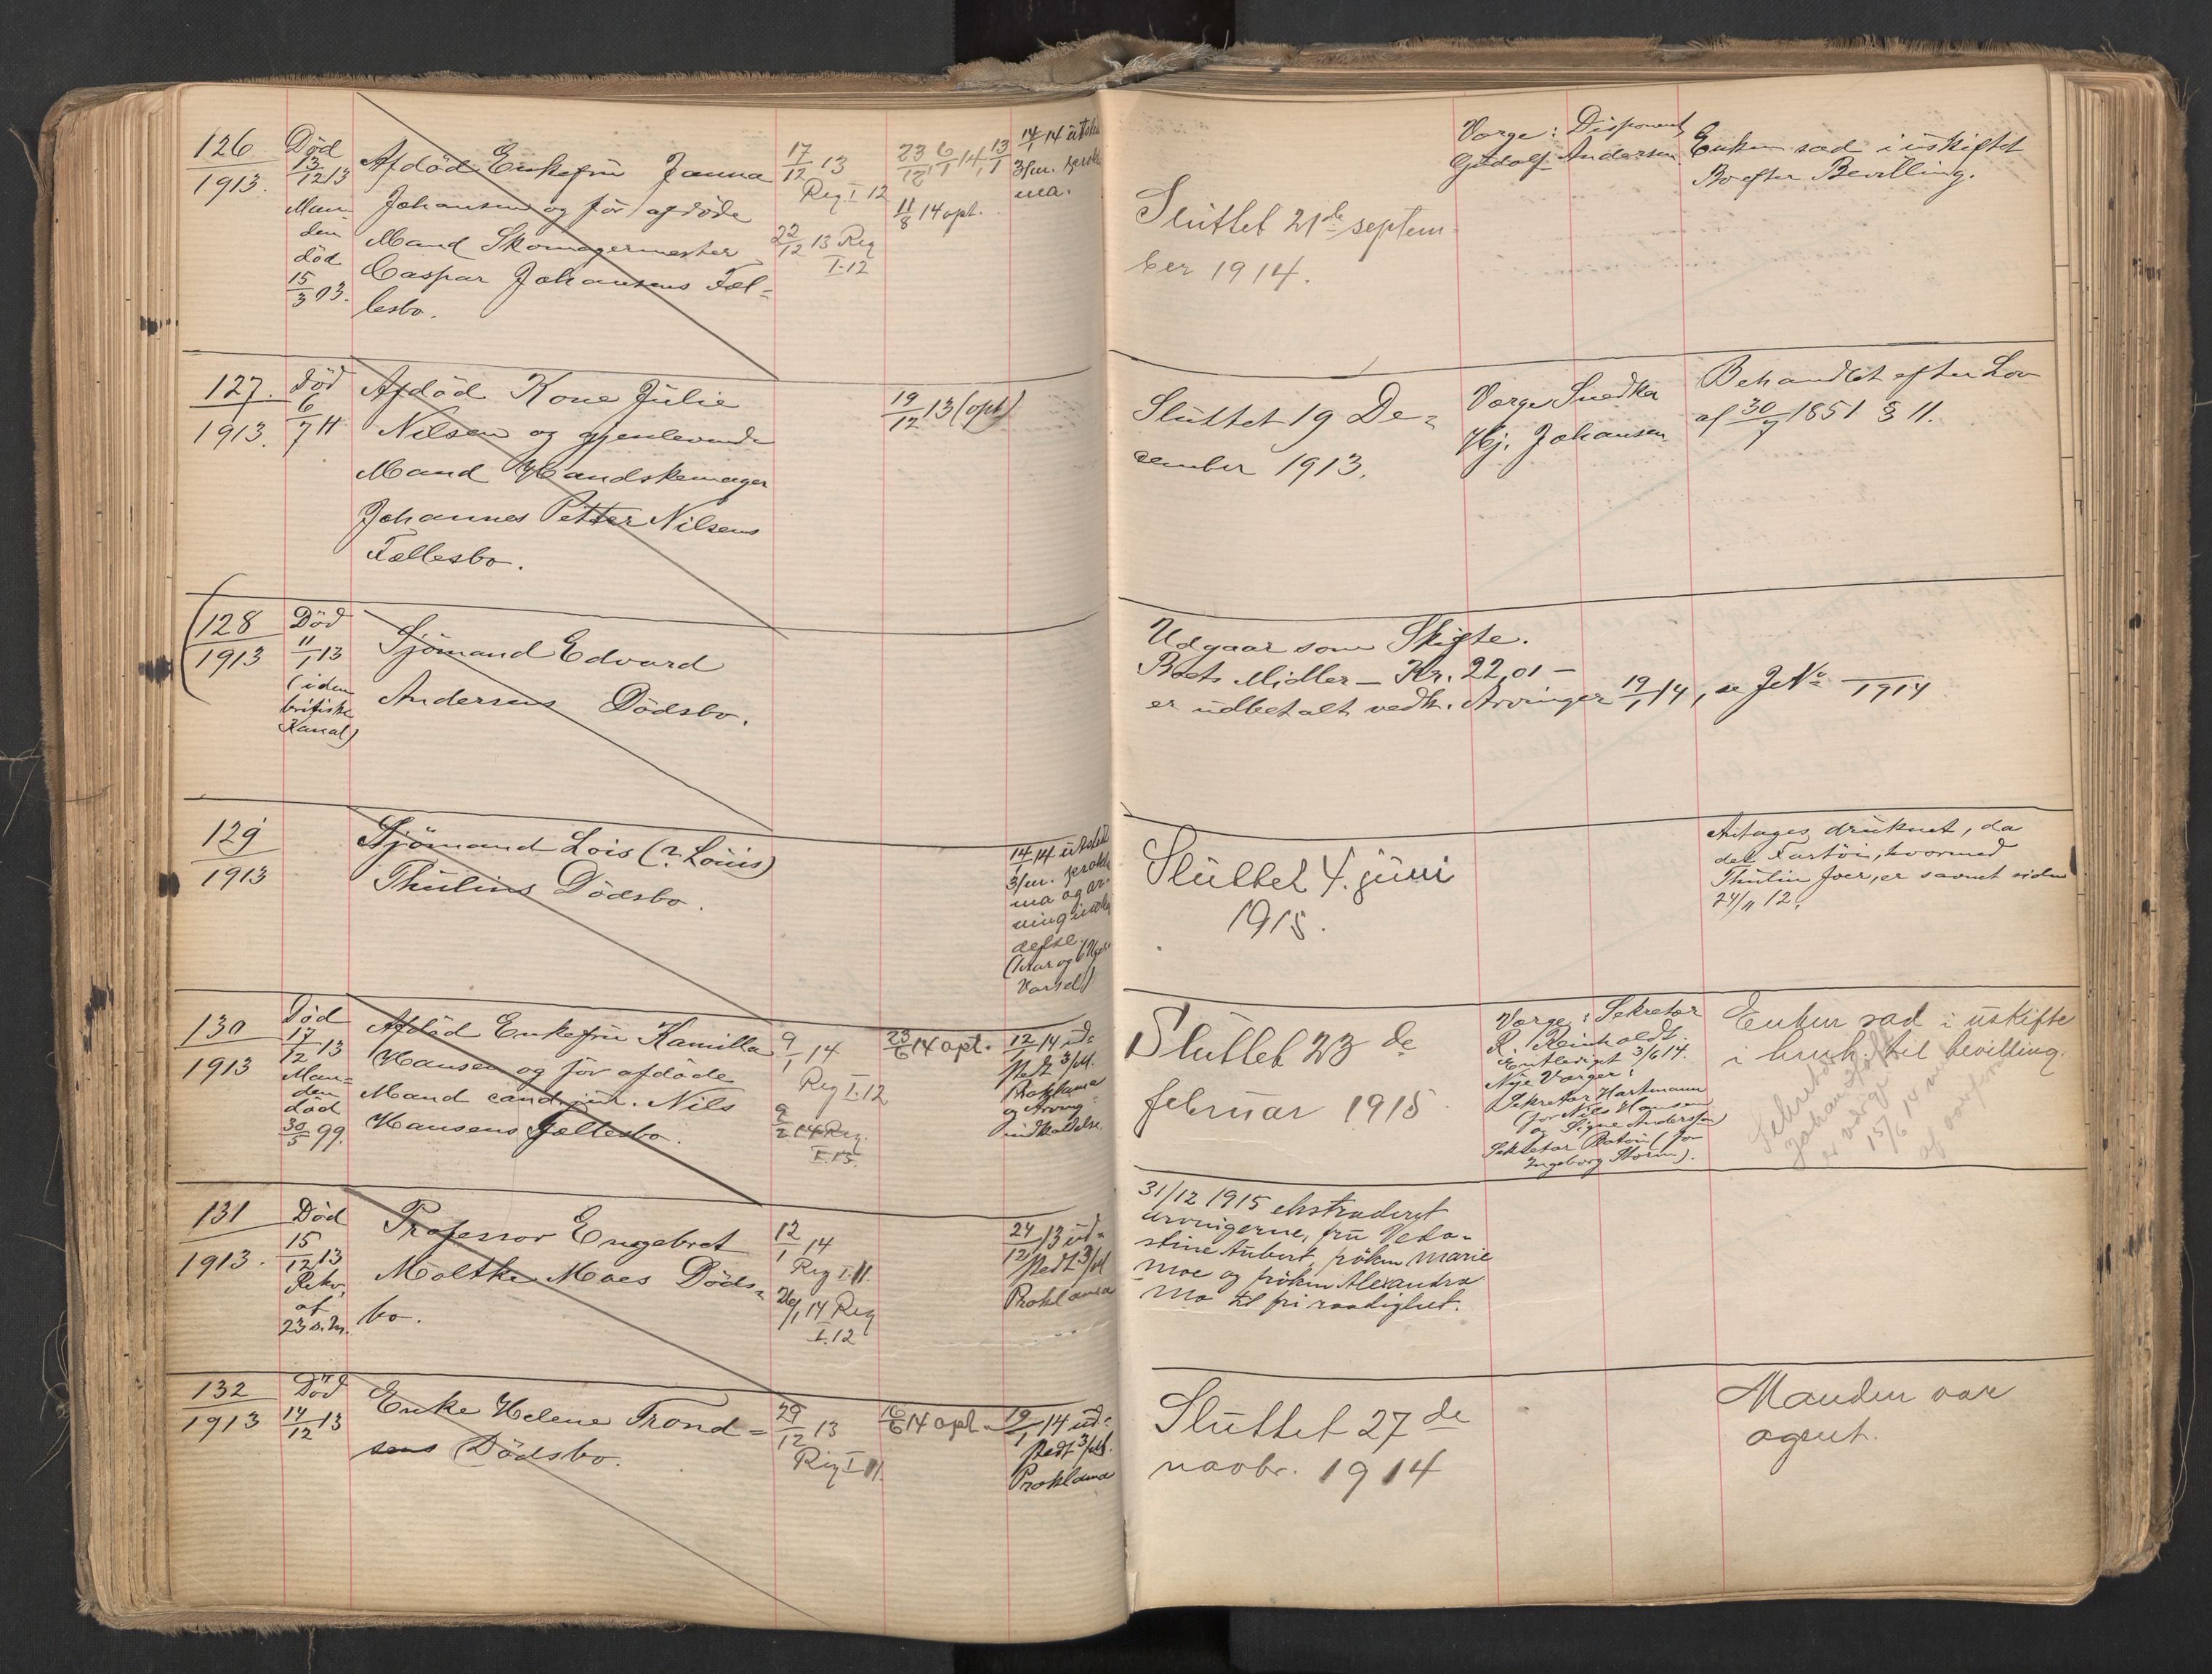 126
1913.
Död
13/12 13
Man-
den
död
15/3 03.
Afdöd Enkefrü Janna
Johansen og før afdöde
Mand Skomagermester
Caspar Johansens Fæl=
lesbo.
17/12 13
Reg I. 12
22/12 13 Reg
I. 12
23/12 6/1 14, 13/1
11/8 14 opt.
14/1 14 utst
3/m. prokla
ma.
Slüttet 21de septem-
ber 1914.
Værge: Disponent
Gudolf Andersen.
Enken sad i üskiftet
Bo efter Bevilling.
127.
1913.
Död
6/7 11
Afdöd Kone Jülie
Nilsen og gjenlevende
Mand Handskemager
Johannes Petter Nilsens
Fællesbo.
19/12 13 (opt)
Slüttet 19 De=
cember 1913.
Værge Snedker
Hj. Johansen
Behandlet efter Lov
af 30/7 1851 § 11.
128
1913
Död
11/1 13
(i den
britiske
Kanal)
Sjömand Edvard
Andersens Dödsbo.
Udgaar som Skifte.
Boets Midler – Kr. 22,01 –
er üdbetalt vedk. Arvinger 19/1 14, se J No /1914
129
1913
Sjömand Lois (? Loüis)
Thülins Dödsbo.
14/1 14 utstedt
3/m. prokla
ma og ar-
vingindkal
delse.
Varsel)
Slüttet 4. jüni
1915.
Antages drüknet, da
det Fartöi, hvormed
Thülin foer, er savnet siden
24/11 12.
130
1913
Död
17/12 13
Man=
den
död
30/5 99.
Afdöd Enkefrü Kamilla
Hansen og før afdöde
Mand cand. jür. Nils
Hansens Fællesbo.
9/1 14
Reg I. 12
9/2 14 Reg.
I. 15.
23/6 14 opt.
12/1 14 üd=
stedt 3/M.
Proklama
og Arving-
indkaldelse.
Slüttet 23 de
februar 1915.
Værge: Sekretær
R. Reinholdt.
Entlediget 3/6 14.
Nye Værger:
Sekretær Hartmann
(for Nils Hansen
og Signe Andersson)
Sekretær (for
Ingeborg Storm).
Enken sad i üskifte
i henh. til bevilling.
Sekretær
Johan
er værge
15/6 14
af
131
1913.
Död
15/12 13
Rekv.
af
23 s. M.
Professor Engebret
Moltke Moes Döds=
bo.
12/1 14
Reg I. 11.
26/1 14 Reg
I. 12
24/12 13 üd=
stedt 3/M
Proklama
31/12 1915 ekstraderet
arvingerne, frü Veda-
stine Aubert, fröken Marie
Moe og fröken Alexandra
Mo til fri raadighet.
132
1913
Död
14/12 13
Enke Helene Trond=
sens Dödsbo.
29/12 13
Reg I 11.
16/6 14 opt.
19/1 14 üd=
stedt 3/M.
Proklama
Slüttet 27 de
novbr. 1914
Manden var
agent.